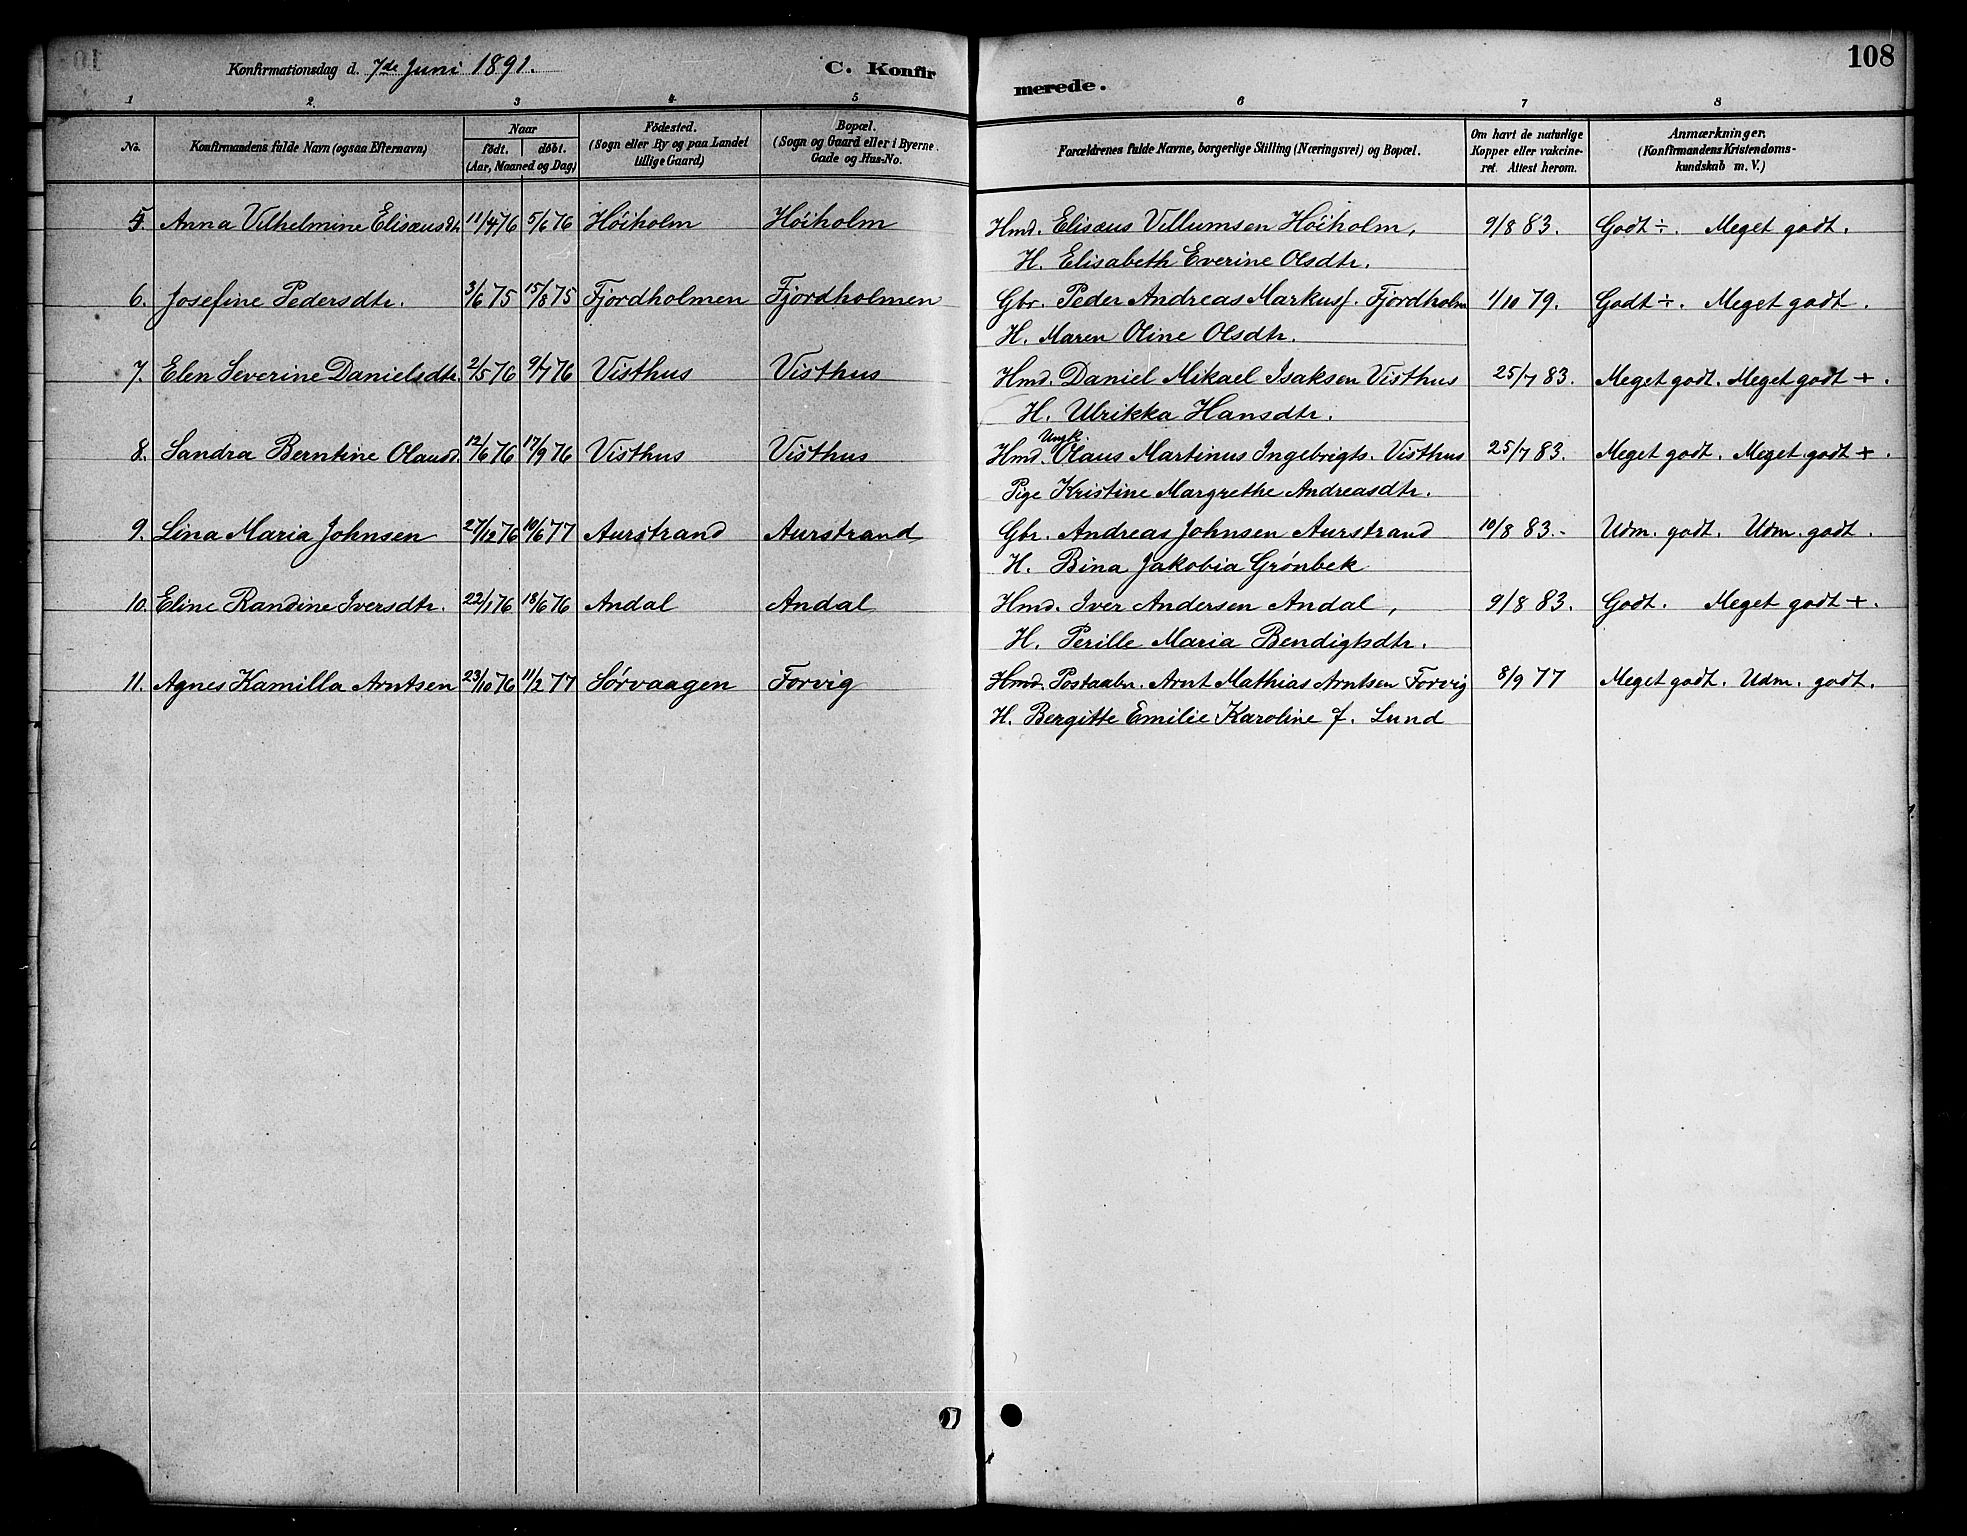 Konfirmationsdag d. 7de Juni 1891.
C. Konfirmerede.
108
1 2 3 4 5 6 7 8
No. Konfirmandens fulde Navn (ogsaa Efternavn) Naar født. døbt. (Aar, Maaned og Dag) Fødested. (Sogn eller By og paa Landet tillige Gaard) Bopæl. (Sogn og Gaard eller i Byerne Gade og Hus-No. Forældrenes fulde Navne, borgerlige Stilling (Næringsvei) og Bopæl. Om havt de naturlige Kopper eller vakcineret. Attest herom. Anmærkninger. (Konfirmandens Kristendomskundskab m. V.)
5. Anna Vilhelmine Elisæusdt. 11/4 76 5/6 76 Höiholm Höiholm Hmd. Elisæus Villumsen Höiholm, 9/8 83. Godt ÷. Meget godt.
H. Elisabeth Everine Olsdtr.
6. Josefine Pedersdtr. 3/6 75 15/8 75 Fjordholmen Fjordholmen Gbr. Peder Andreas Markusf. Fjordholm 1/10 79. Godt ÷. Meget godt.
H. Maren Oline Olsdtr.
7. Elen Severine Danielsdtr. 2/5 76 9/7 76 Visthus Visthus Hmd. Daniel Mikael Isaksen Visthus 25/7 83. Meget godt. Meget godt +.
H. Ulrikka Hansdtr.
8. Sandra Berntine Olausd. 12/6 76 17/9 76 Visthus Visthus Hmd. Ungk. Olaus Martinus Ingebrigts. Visthus 25/7 83. Meget godt. Meget godt +.
Pige Kristine Margrethe Andreasdtr.
9. Lina Maria Johnsen 27/12 76 10/6 77 Aurstrand Aurstrand Gbr. Andreas Johnsen Aurstrand 10/8 83.- Udm. godt. Udm. godt.
H. Bina Jakobia Grønbek
10. Eline Randine Iversdtr. 22/1 76 18/6 76 Andal Andal Hmd. Iver Andersen Andal, 9/8 83. Godt. Meget godt +.
H. Perille Maria Bendigtsdtr.
11. Agnes Kamilla Arntsen 23/10 76 11/2 77 Sørvaagen Forvig Hmd. Postaabn. Arnt Mathias Arntsen Forvig 8/9 77 Meget godt. Udm. godt.
H. Bergitte Emilie Karoline f. Lund